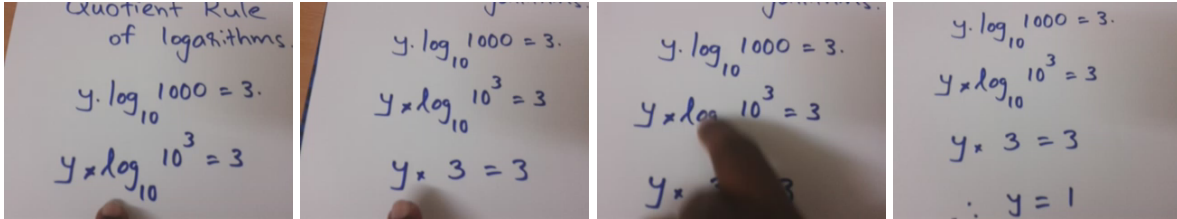 Quotient Rule
of logarithms.
y. log₁₀ 1000 = 3.
y × log₁₀ 10³ = 3
y. log₁₀ 1000 = 3.
y × log₁₀ 10³ = 3
y × 3 = 3
y. log₁₀ 1000 = 3.
y × log 10³ = 3
y ×
y. log₁₀ 1000 = 3.
y × log₁₀ 10³ = 3
y × 3 = 3
∴ y = 1